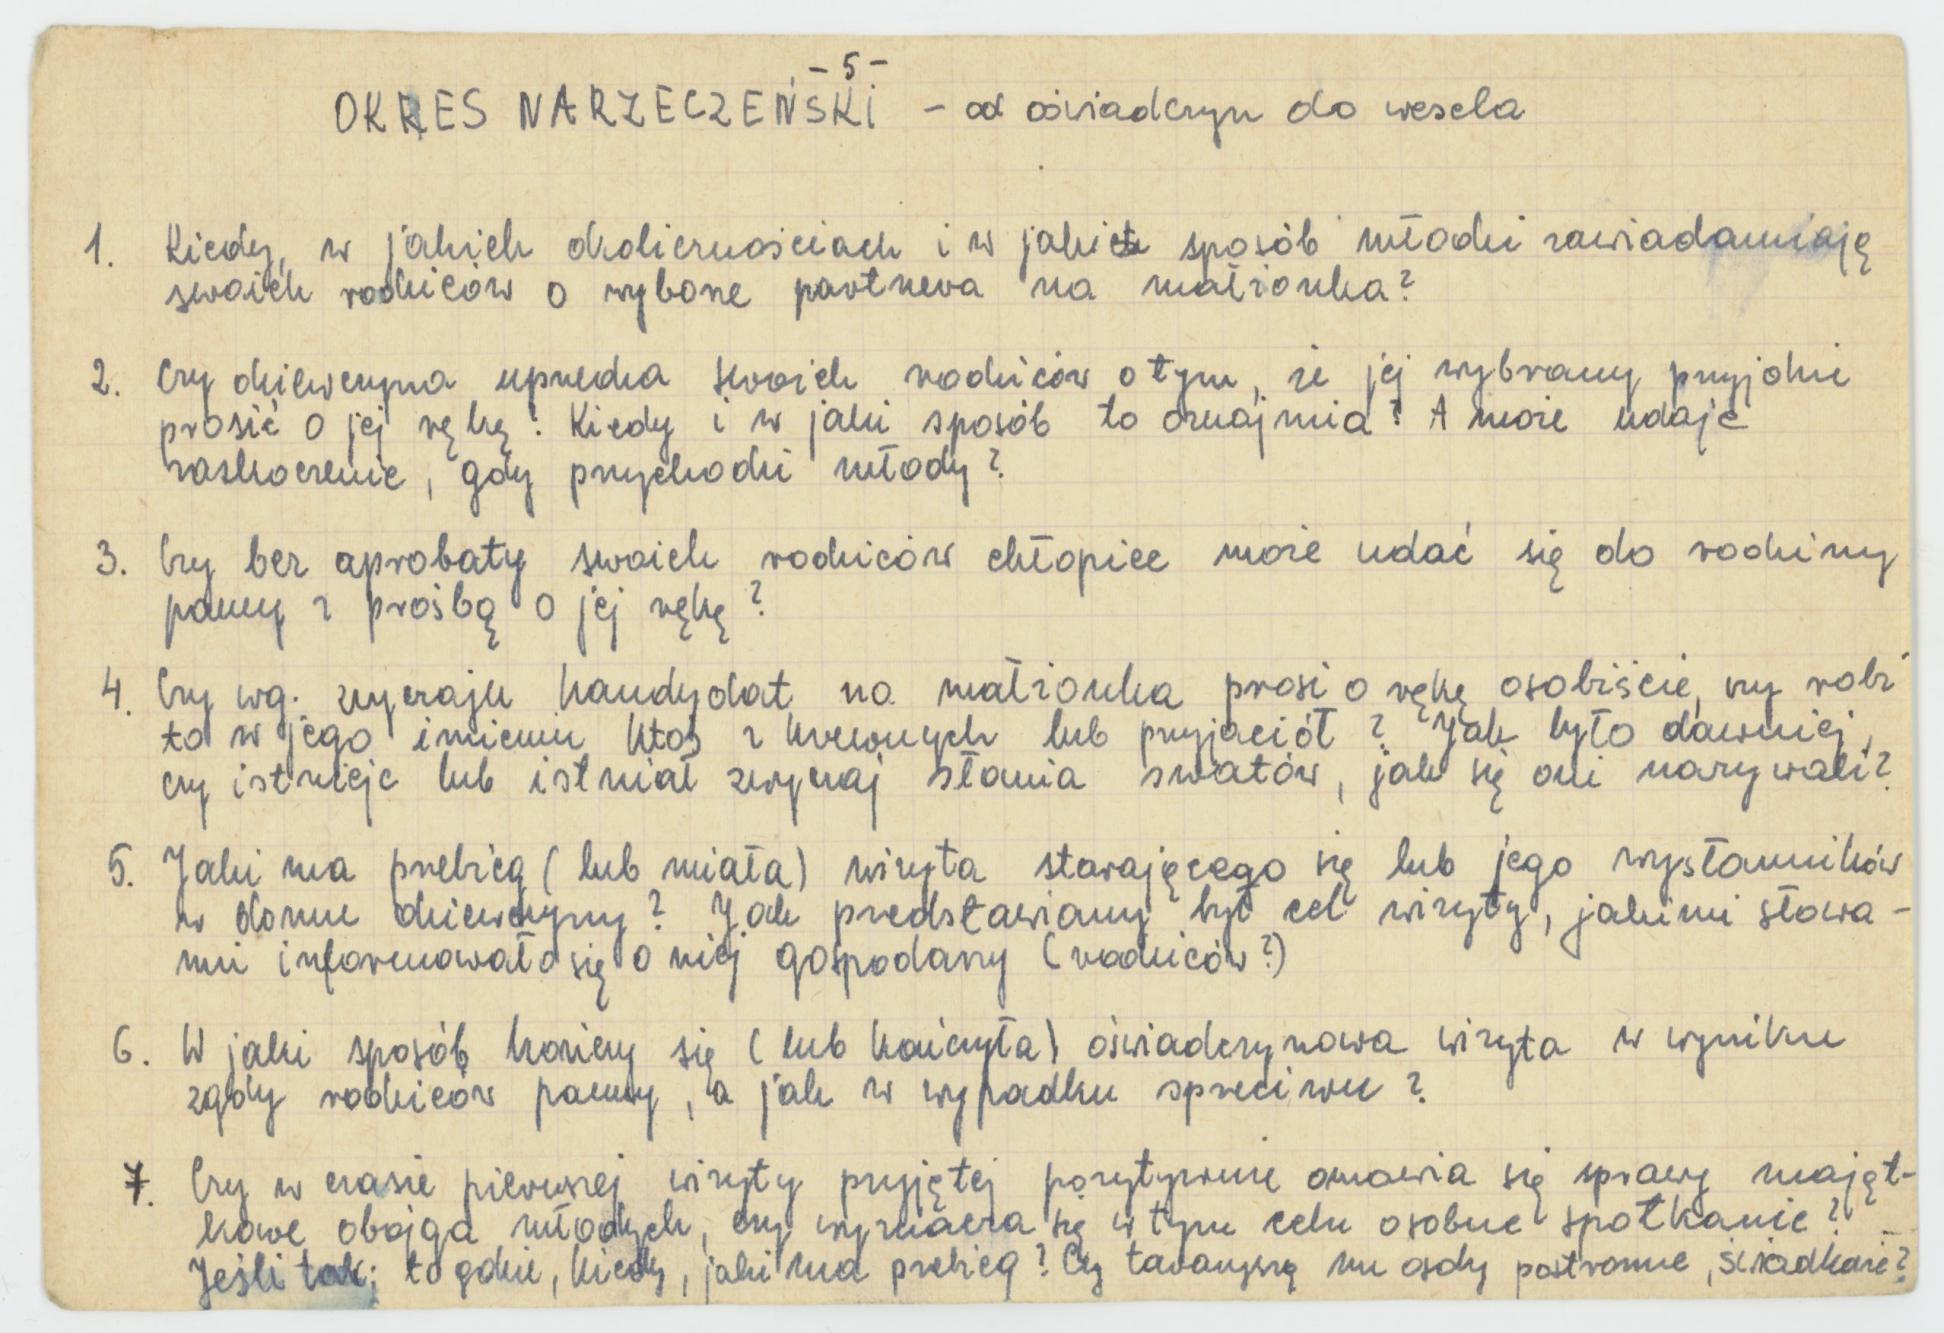 - 5 -
OKRES NARZECZEŃSKI - od oświadczyn do wesela
1. Kiedy, w jakich okolicznościach i w jaki sposób młodzi zawiadamiają
swoich rodziców o wyborze partnera na małżonka?
2. Czy dziewczyna uprzedza swoich rodziców o tym, że jej wybrany przyjdzie
prosić o jej rękę? Kiedy i w jaki sposób to oznajmia? A może udaje
zaskoczenie, gdy przychodzi młody?
3. Czy bez aprobaty swoich rodziców chłopiec może udać się do rodziny
panny z prośbą o jej rękę?
4. Czy wg. zwyczaju kandydat na małżonka prosi o rękę osobiście, czy robi
to w jego imieniu ktoś z krewnych lub przyjaciół? Jak było dawniej,
czy istnieje lub istniał zwyczaj słania swatów, jak się oni nazywali?
5. Jaki ma przebieg (lub miała) wizyta starającego się lub jego wysłanników
w domu dziewczyny? Jak przedstawiany był cel wizyty, jakimi słowa-
mi informowało się o niej gospodarzy (rodziców?)
6. W jaki sposób kończy się (lub kończyła) oświadczynowa wizyta w wyniku
zgody rodziców panny, a jak w wypadku sprzeciwu?
7. Czy w czasie pierwszej wizyty przyjętej pozytywnie omawia się sprawy mająt-
kowe obojga młodych, czy wyznacza się w tym celu osobne spotkanie?
Jeśli tak; to gdzie, kiedy, jaki ma przebieg? Czy towarzyszą mu osoby postronne, świadkowie?